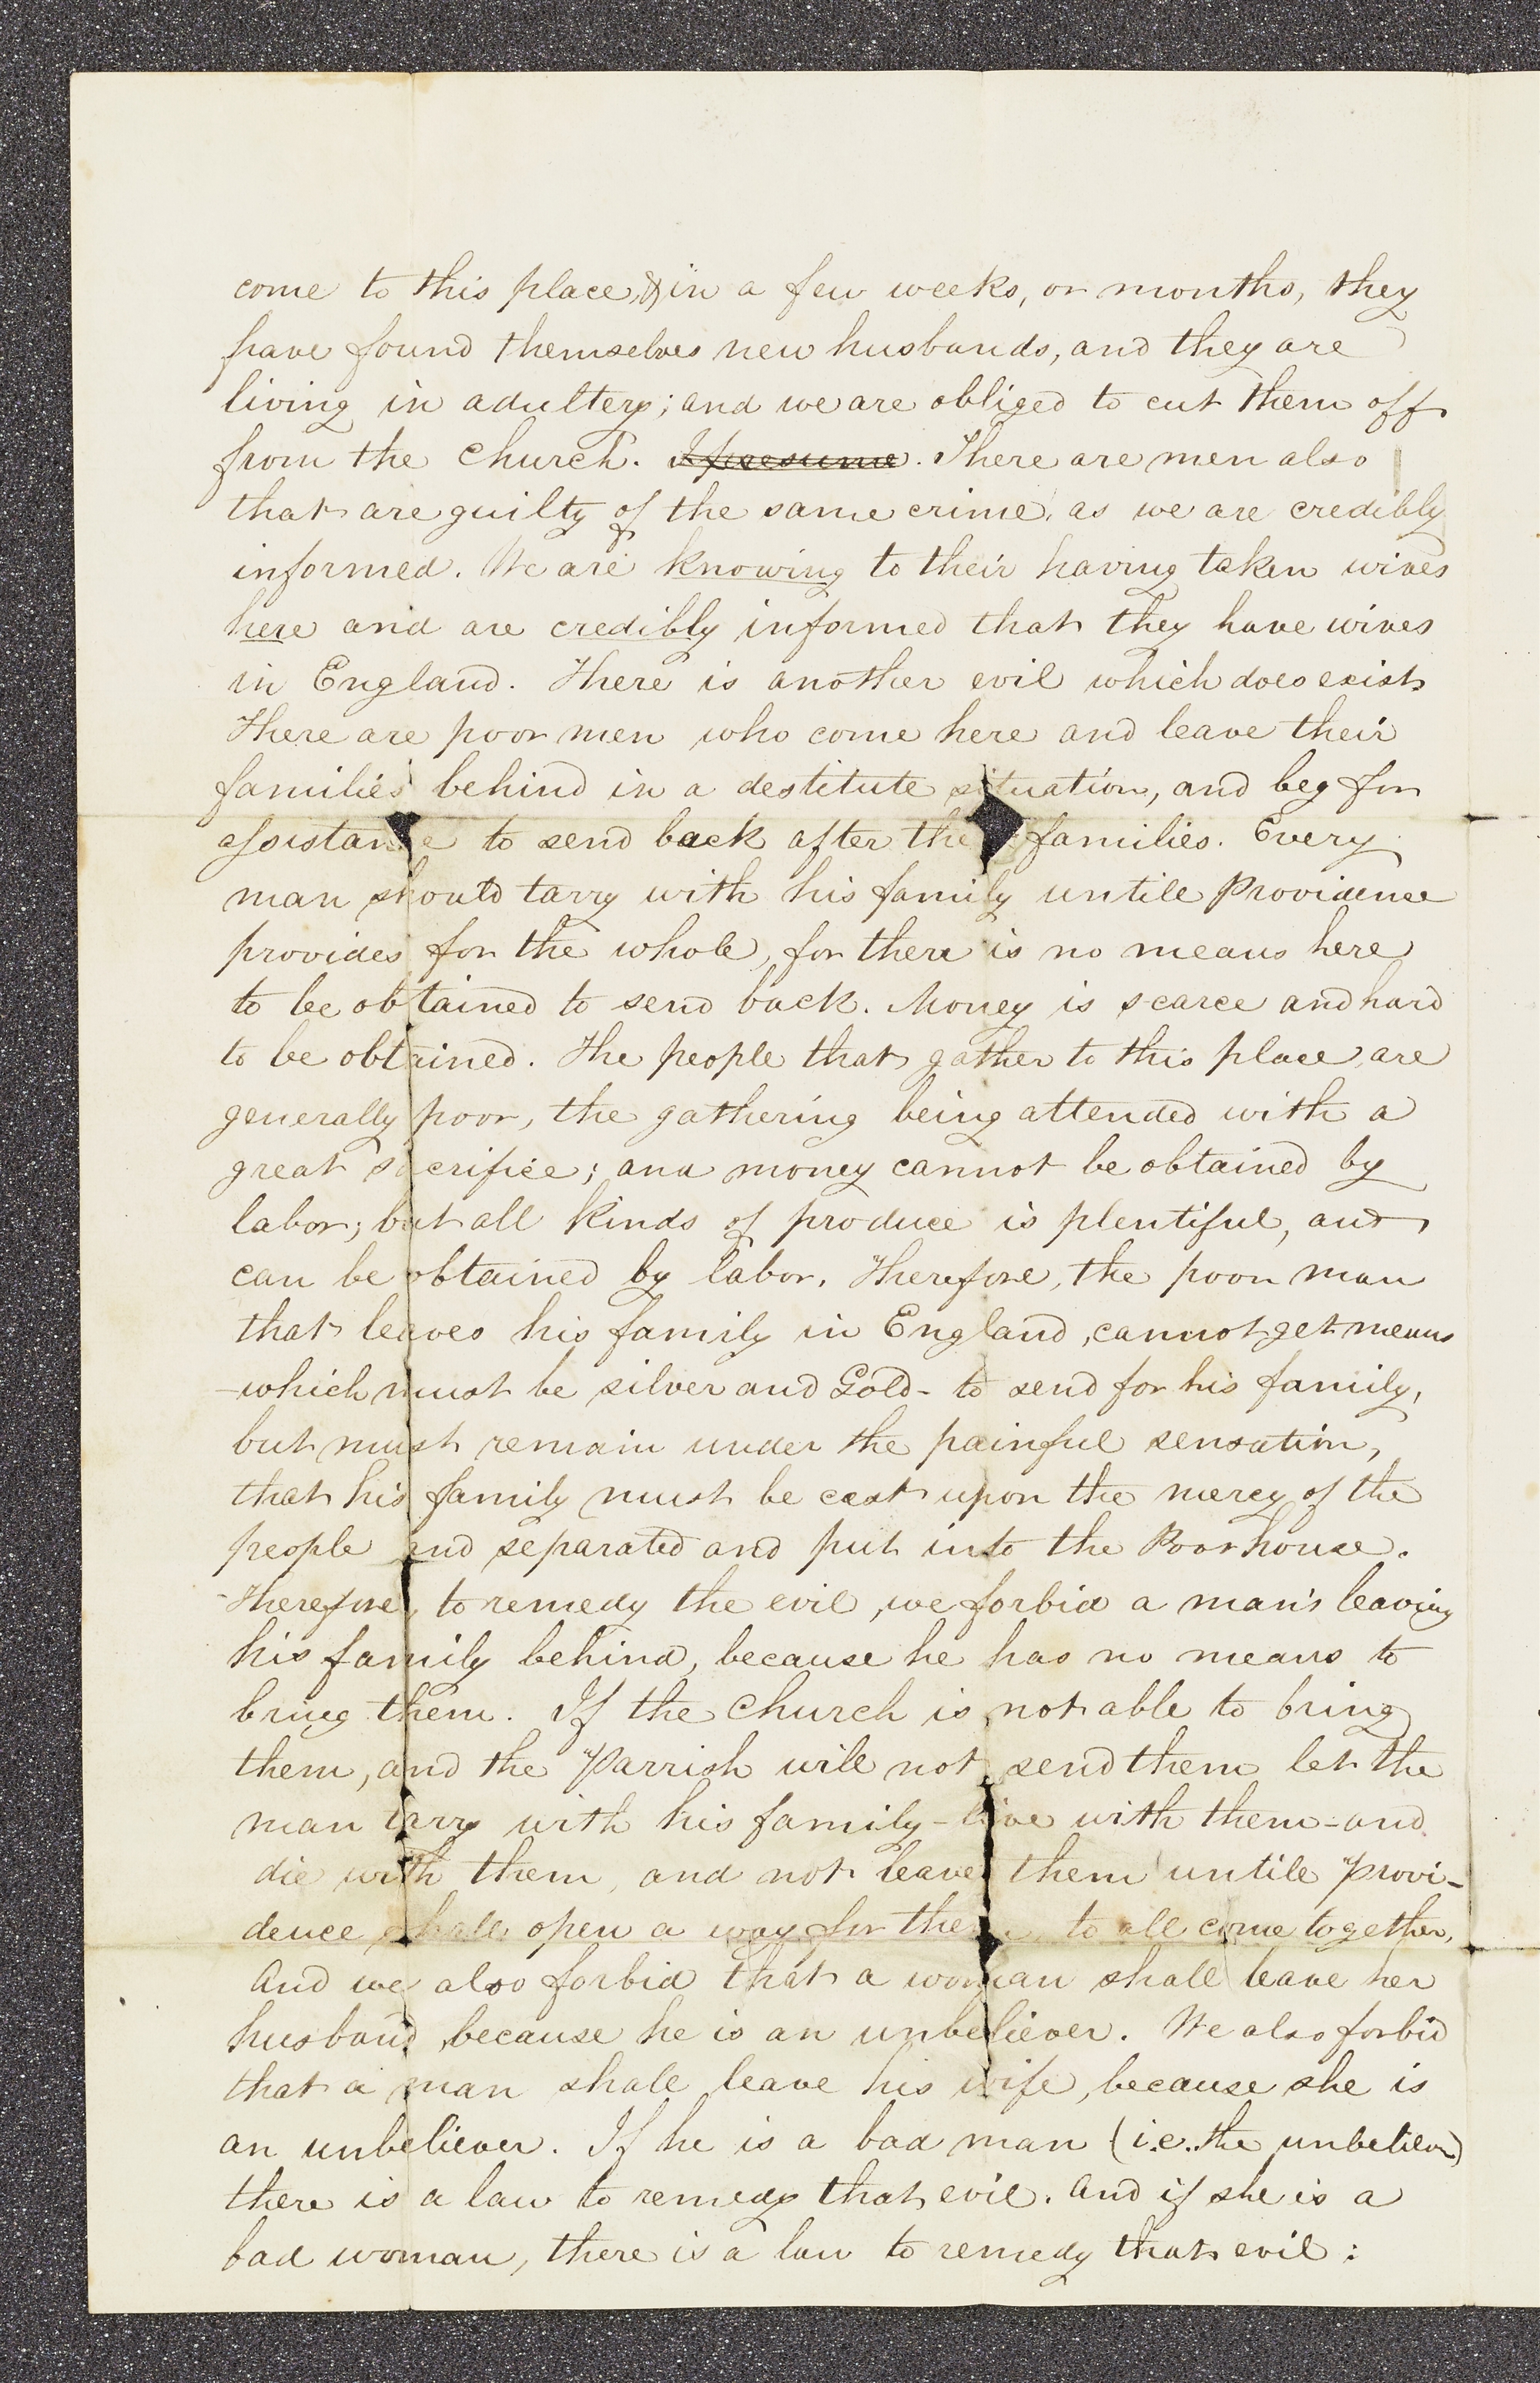 come to this place, & in a few weeks, or months, they
have found themselves new husbands, and they are
living in adultery; and we are obliged to cut them off
from the church. I presume. There are men also
that are guilty of the same crime, as we are credibly
informed. We are knowing to their having taken wives
here and are credibly informed that they have wives
in England. There is another evil which does exist
There are poor men who come here and leave their
families behind in a destitute situation, and beg for
assistance to send back after the families. Every
man should tarry with his family untile Providence
provides for the whole, for there is no means here
to be obtained to send back. Money is scarce and hard
to be obtained. The people that gather to this place, are
generally poor, the gathering being attended with a
great sacrifice; and money cannot be obtained by
labor; but all kinds of produce is plentiful, and
can be obtained by labor. Therefore, the poor man
that leaves his family in England, cannot get means
-which must be silver and Gold- to send for his family,
but must remain under the painful sensation,
that his family must be cast upon the mercy of the
people and separated and put into the Poorhouse.
Therefore, to remedy the evil, we forbid a man's leaving
his family behind, because he has no means to
bring them. If the church is not able to bring
them, and the Parrish will not send them let the
man tarry with his family-live with them-and
die with them, and not leave them untile provi-
dence shall open a way for them to all come together,
And we also forbid that a woman shall leave her
husband because he is an unbeliever. We also forbid
that a man shall leave his wife, because she is
an unbeliever. If he is a bad man (i.e. the unbeliever)
there is a law to remedy that evil. And if she is a
bad woman, there is a law to remedy that evil: